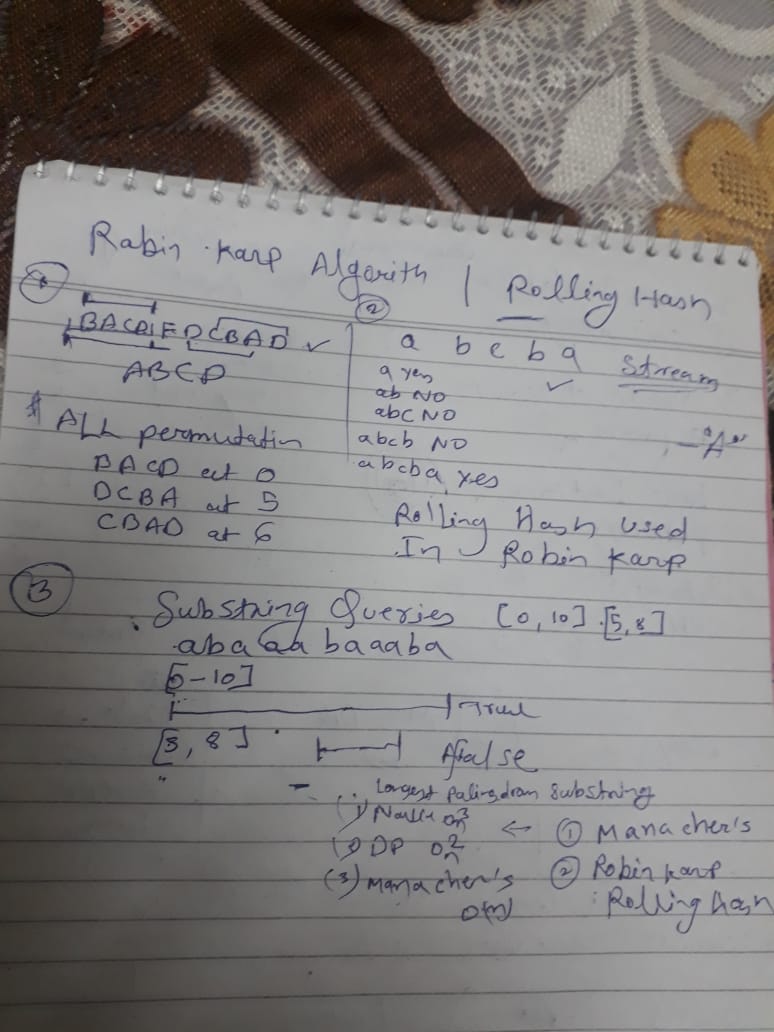 Rabin Karp Algorith | Rolling Hash
①
BACDFDCBAD ✓
ABCD
ALL permutation
BACD at 0
DCBA at 5
CBAD at 6
②
a b c b a Stream
a yes ✓
ab NO
abc NO
abcb NO
abcba yes
"A"
Rolling Hash used
In Robin Karp
③
Substring Queries [0,10] [5,8]
abaaabaaaba
[0-10]
True
[3,8]
False
Longest palingdrom Substring
(1) Naive On3
(2) DP On2
(3) Manacher's
O(n)
← ① Manacher's
② Robin karp
: Rolling hash